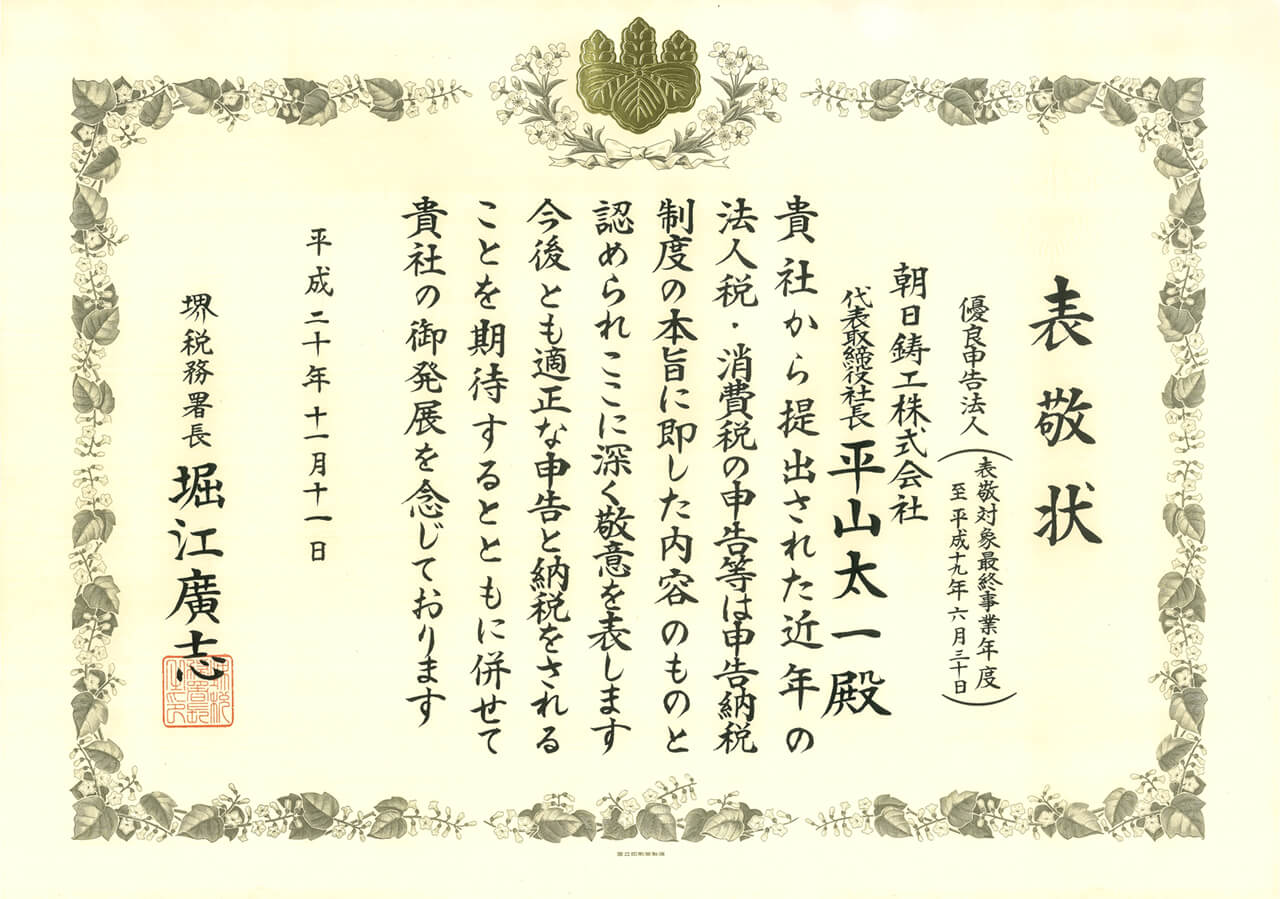 表敬状
優良申告法人
（表敬対象最終事業年度
至 平成十九年六月三十日）
朝日鋳工株式会社
代表取締役社長 平山太一殿
貴社から提出された近年の
法人税・消費税の申告等は申告納税
制度の本旨に即した内容のものと
認められここに深く敬意を表します
今後とも適正な申告と納税をされる
ことを期待するとともに併せて
貴社の御発展を念じております
平成二十年十一月十一日
堺税務署長 堀江廣志